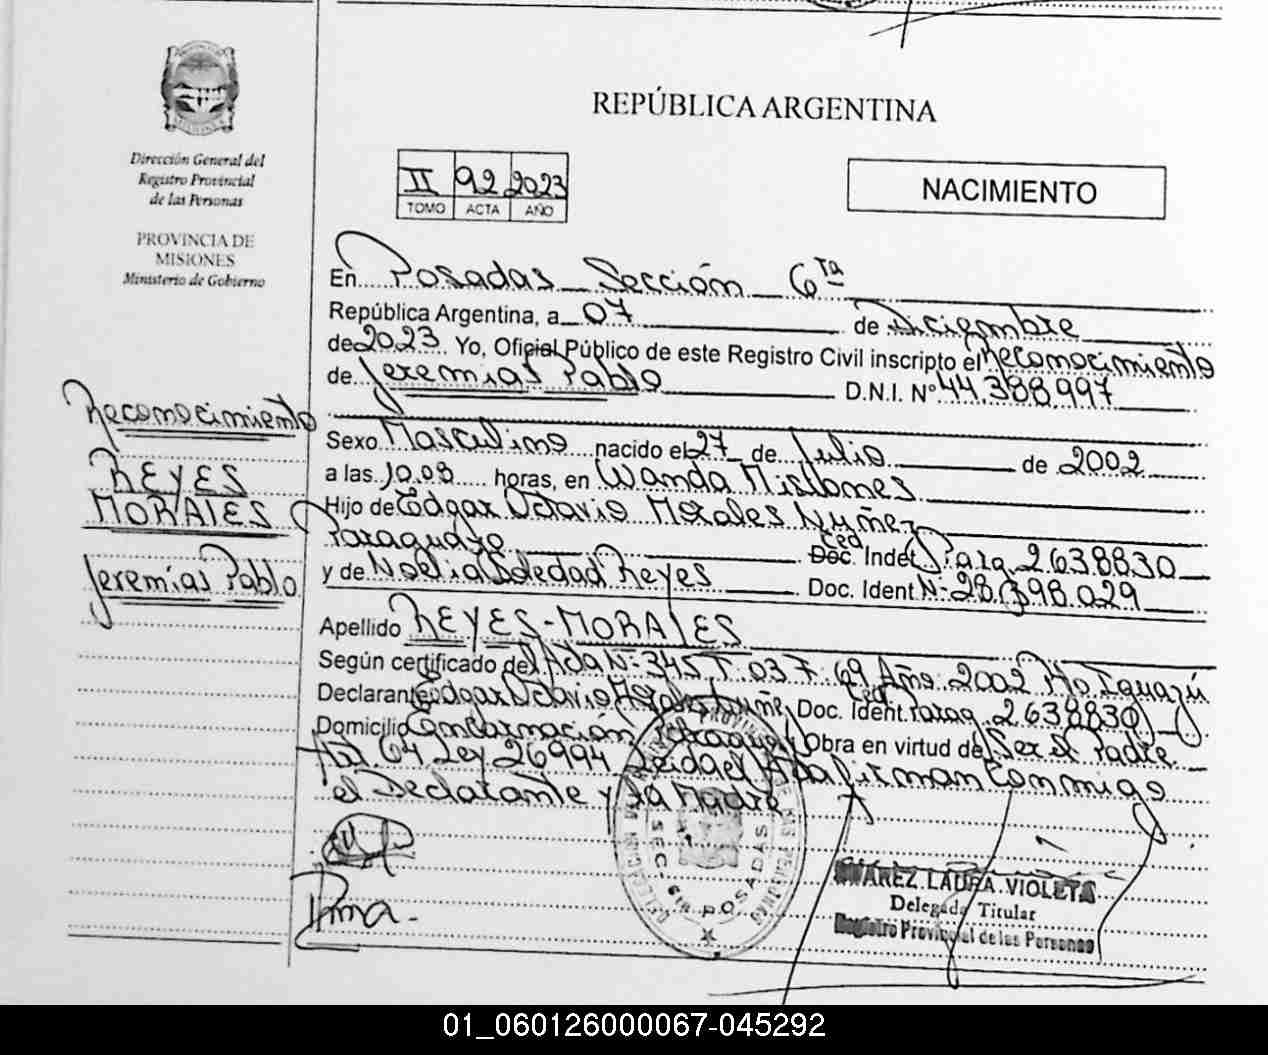 Dirección General del
Registro Provincial
de las Personas
PROVINCIA DE
MISIONES
Ministerio de Gobierno
Reconocimiento
REYES
MORALES
Jeremias Pablo
REPÚBLICA ARGENTINA
II 92 2023
TOMO ACTA AÑO
NACIMIENTO
En Posadas Sección 6ta
República Argentina, a 07 de Diciembre
de 2023 Yo, Oficial Público de este Registro Civil inscripto el Reconocimiento
de Jeremias Pablo D.N.I. Nº 44.388.997
Sexo Masculino nacido el 27 de Julio de 2002
a las 10.08 horas, en Wanda Misiones
Hijo de Edgar Octavio Morales Nuñez
Paraguayo Doc. Ident Ced Parag. 2638830
y de Noelia Soledad Reyes Doc. Ident N- 28.398.029
Apellido REYES-MORALES
Según certificado del Acta N- 345 T. 03 F. 69 Año 2002 Pto Iguazú
Declarante Edgar Octavio Morales Nuñez Doc. Ident. Ced Parag. 2638830
Domicilio Encarnación Paraguay Obra en virtud de Ser el Padre
Art 64 Ley 26994 firman conmigo
el Declarante y la Madre
SEC. 6ta POSADAS
SUÁREZ LAURA VIOLETA
Delegada Titular
Registro Provincial de las Personas
01_060126000067-045292